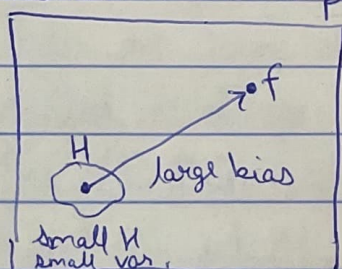 f
H
large bias
small H
small var.